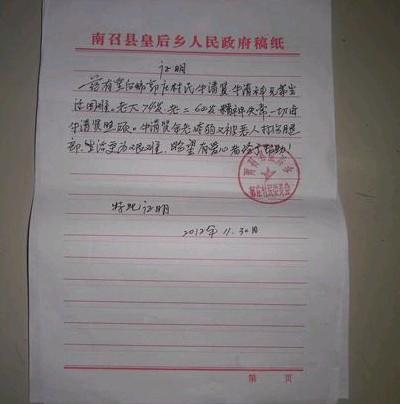 南召县皇后乡人民政府稿纸
证明
兹有皇后乡郭庄村民牛清贤牛清禄兄弟生
活困难。老大74岁老二60岁精神失常一切由
牛清贤照顾。牛清贤年老 又被恶人打伤眼
部生活更为艰难,盼望有爱心者给予帮助!
特此证明
2012年11.30日
郭庄村民委员会
第 页